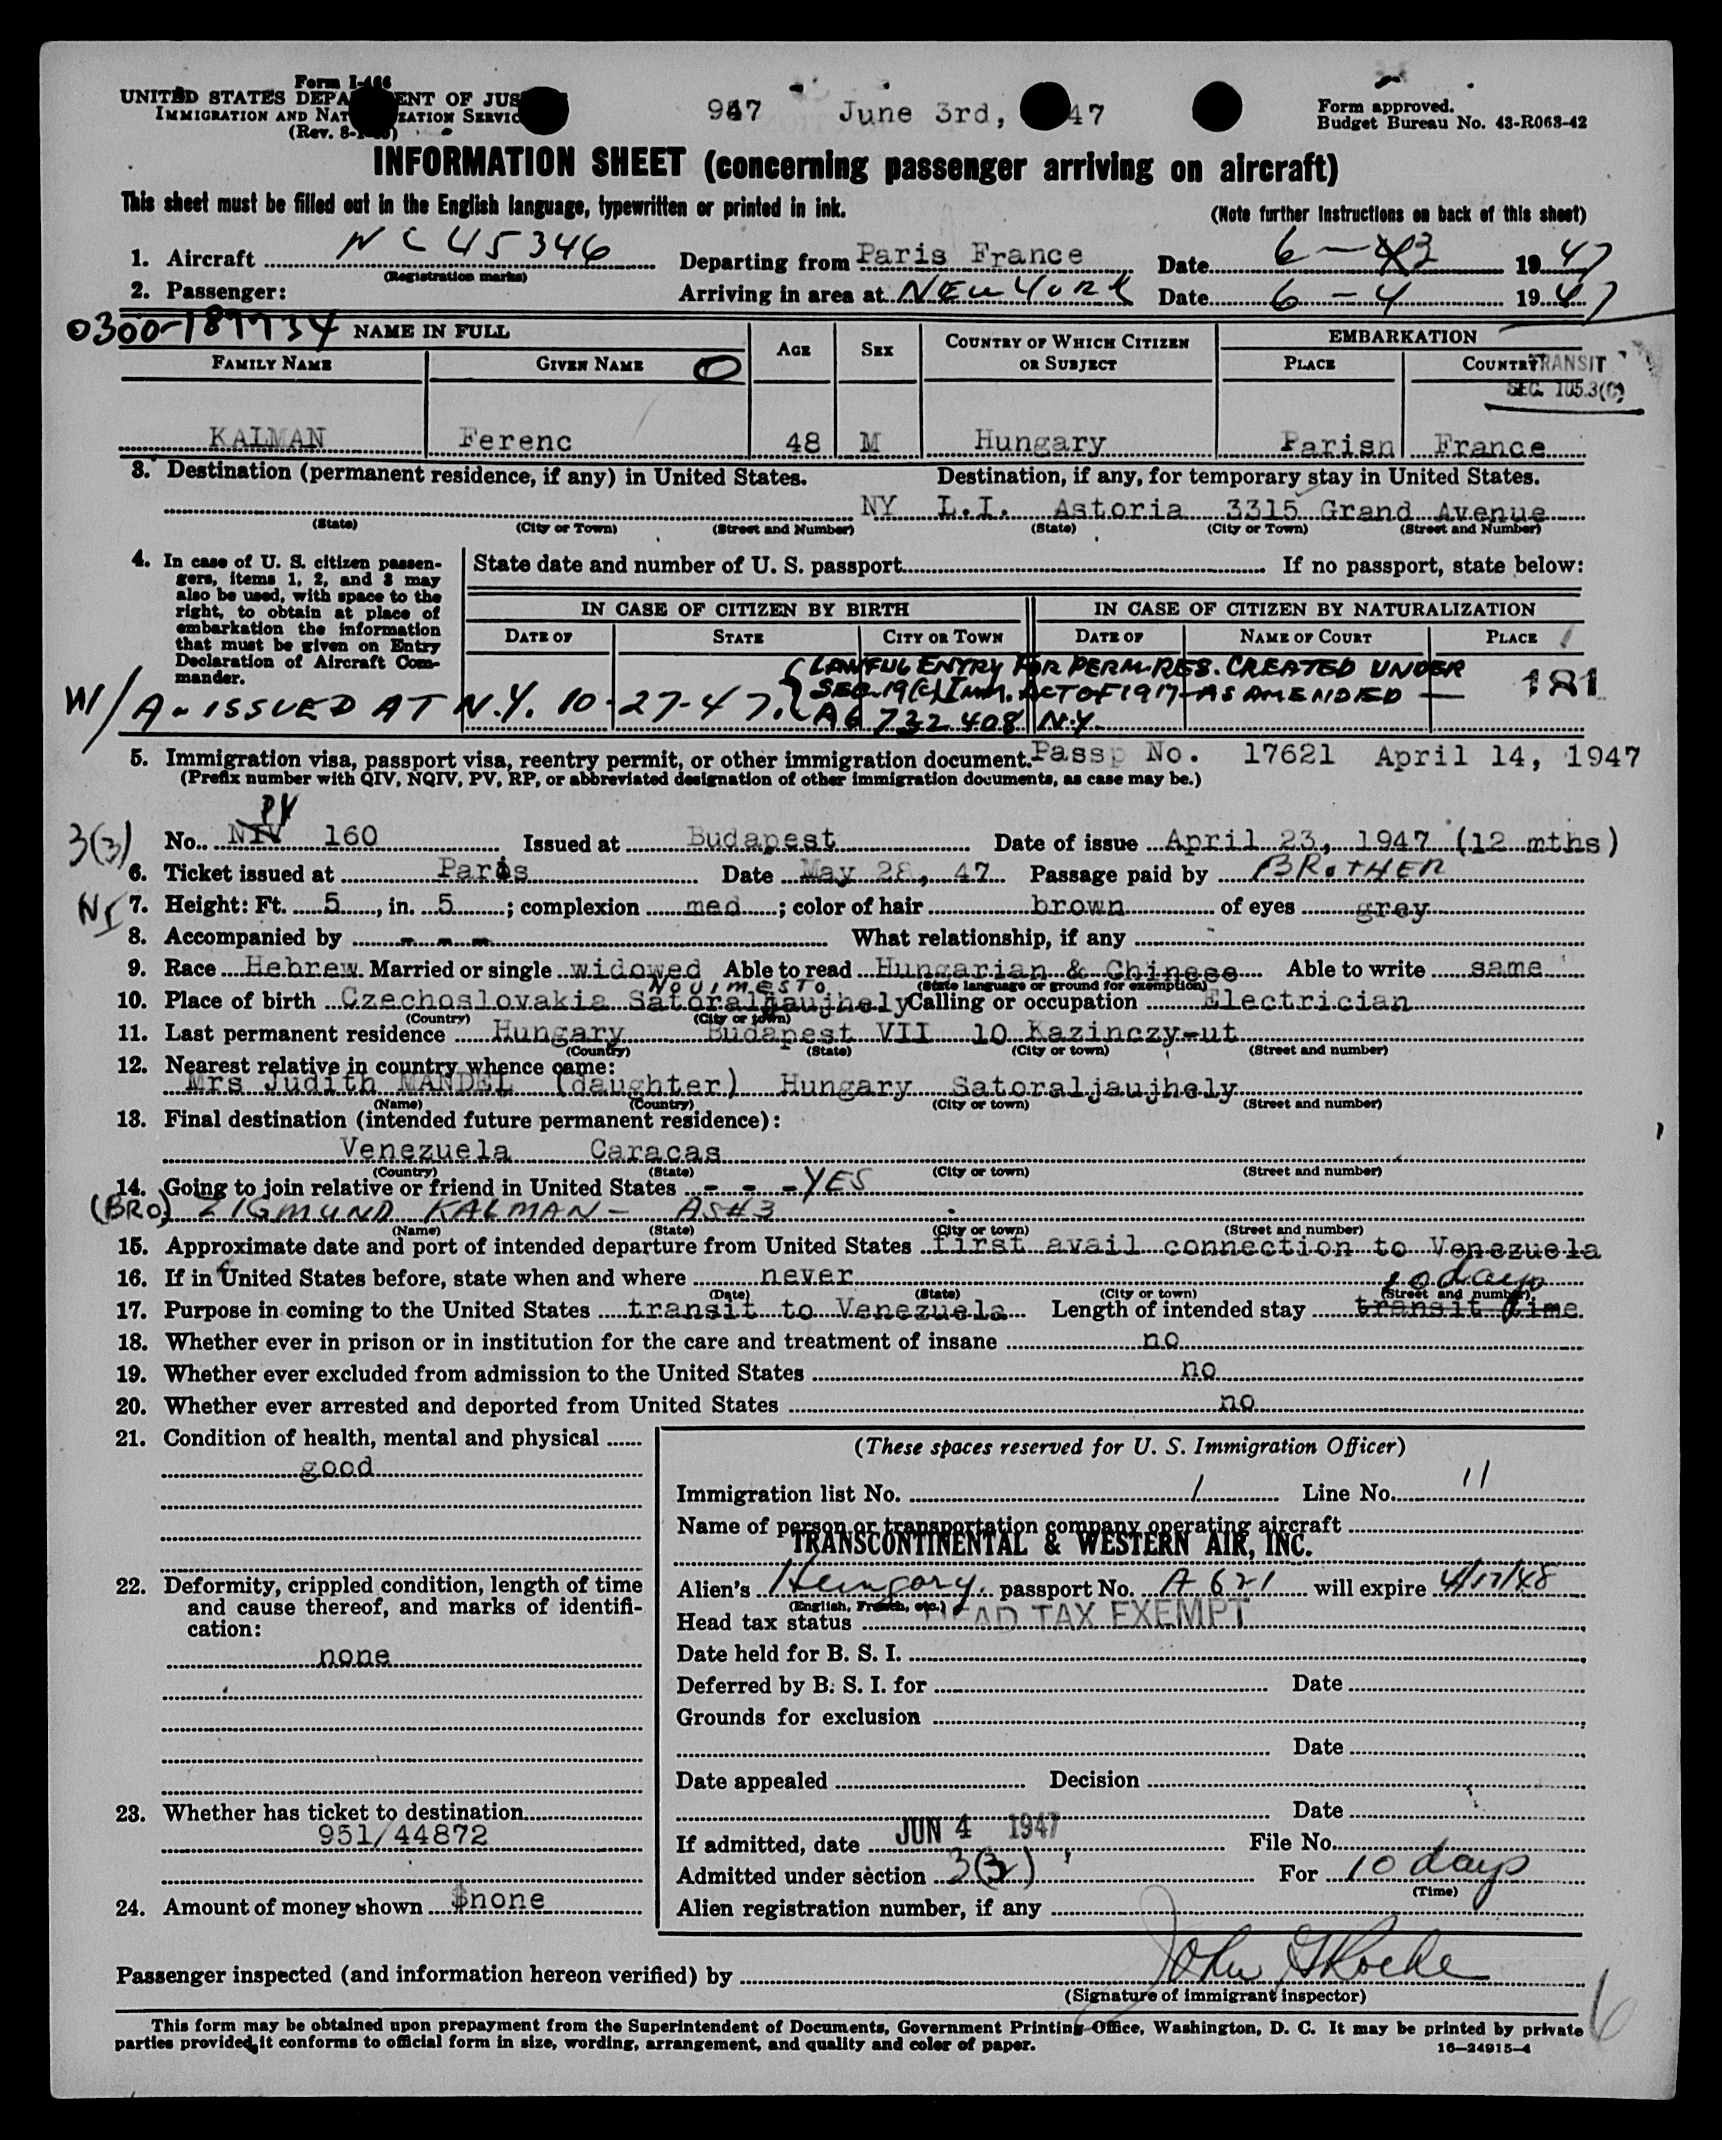 Form I-466
UNITED STATES DEPA ENT OF JUS
IMMIGRATION AND NAT ZATION SERVIC
(Rev. 8-
947 June 3rd, 47
Form approved.
Budget Bureau No. 43-R063-42
INFORMATION SHEET (concerning passenger arriving on aircraft)
This sheet must be filled out in the English language, typewritten or printed in ink.
(Note further instructions on back of this sheet)
1. Aircraft NC45346 Departing from Paris France Date 6-3 1947
(Registration marks)
2. Passenger: Arriving in area at NEW YORK Date 6-4 1947
0300-189734 NAME IN FULL
AGE SEX COUNTRY OF WHICH CITIZEN OR SUBJECT EMBARKATION
FAMILY NAME GIVEN NAME O PLACE COUNTRY
TRANSIT
SEC. 105.3(C)
KALMAN Ferenc 48 M Hungary Parisn France
3. Destination (permanent residence, if any) in United States. Destination, if any, for temporary stay in United States.
NY L.I. Astoria 3315 Grand Avenue
(State) (City or Town) (Street and Number) (State) (City or Town) (Street and Number)
4. In case of U. S. citizen passen-
gers, items 1, 2, and 3 may
also be used, with space to the
right, to obtain at place of
embarkation the information
that must be given on Entry
Declaration of Aircraft Com-
mander.
State date and number of U. S. passport If no passport, state below:
IN CASE OF CITIZEN BY BIRTH IN CASE OF CITIZEN BY NATURALIZATION
DATE OF STATE CITY OR TOWN DATE OF NAME OF COURT PLACE
LAWFUL ENTRY FOR PERM. RES. CREATED UNDER
SEC. 19(c) IMM. ACT OF 1917 AS AMENDED — 181
W/A - ISSUED AT N.Y. 10-27-47. A6 732 408 N.Y.
5. Immigration visa, passport visa, reentry permit, or other immigration document. Passp No. 17621 April 14, 1947
(Prefix number with QIV, NQIV, PV, RP, or abbreviated designation of other immigration documents, as case may be.)
PV
3(3) No. NIV 160 Issued at Budapest Date of issue April 23, 1947 (12 mths)
6. Ticket issued at Paris Date May 28, 47 Passage paid by BROTHER
NI 7. Height: Ft. 5, in. 5; complexion med; color of hair brown of eyes grey
8. Accompanied by - - - What relationship, if any
9. Race Hebrew Married or single widowed Able to read Hungarian & Chinese Able to write same
NOVIMESTO (State language or ground for exemption)
10. Place of birth Czechoslovakia Satoraljaujhely Calling or occupation Electrician
(Country) (City or town)
11. Last permanent residence Hungary Budapest VII 10 Kazinczy-ut
(Country) (State) (City or town) (Street and number)
12. Nearest relative in country whence came:
Mrs Judith MANDEL (daughter) Hungary Satoraljaujhely
(Name) (Country) (City or town) (Street and number)
13. Final destination (intended future permanent residence):
Venezuela Caracas
(Country) (State) (City or town) (Street and number)
14. Going to join relative or friend in United States - - - YES
(BRO) ZIGMUND KALMAN - AS#3
(Name) (State) (City or town) (Street and number)
15. Approximate date and port of intended departure from United States first avail connection to Venezuela
16. If in United States before, state when and where never
(Date) (State) (City or town) (Street and number)
10 days
17. Purpose in coming to the United States transit to Venezuela Length of intended stay transit time.
18. Whether ever in prison or in institution for the care and treatment of insane no
19. Whether ever excluded from admission to the United States no
20. Whether ever arrested and deported from United States no
21. Condition of health, mental and physical
good
22. Deformity, crippled condition, length of time
and cause thereof, and marks of identifi-
cation:
none
23. Whether has ticket to destination
951/44872
24. Amount of money shown $none
(These spaces reserved for U. S. Immigration Officer)
Immigration list No. 1 Line No. 11
Name of person or transportation company operating aircraft
TRANSCONTINENTAL & WESTERN AIR, INC.
Alien's Hungary. passport No. A 621 will expire 4/17/48
(English, French, etc.)
Head tax status HEAD TAX EXEMPT
Date held for B. S. I.
Deferred by B. S. I. for Date
Grounds for exclusion
Date
Date appealed Decision
Date
If admitted, date JUN 4 1947 File No.
Admitted under section 3(3) For 10 days
(Time)
Alien registration number, if any
Passenger inspected (and information hereon verified) by John G Roche
(Signature of immigrant inspector)
6
This form may be obtained upon prepayment from the Superintendent of Documents, Government Printing Office, Washington, D. C. It may be printed by private
parties provided it conforms to official form in size, wording, arrangement, and quality and color of paper.
16—24915-4